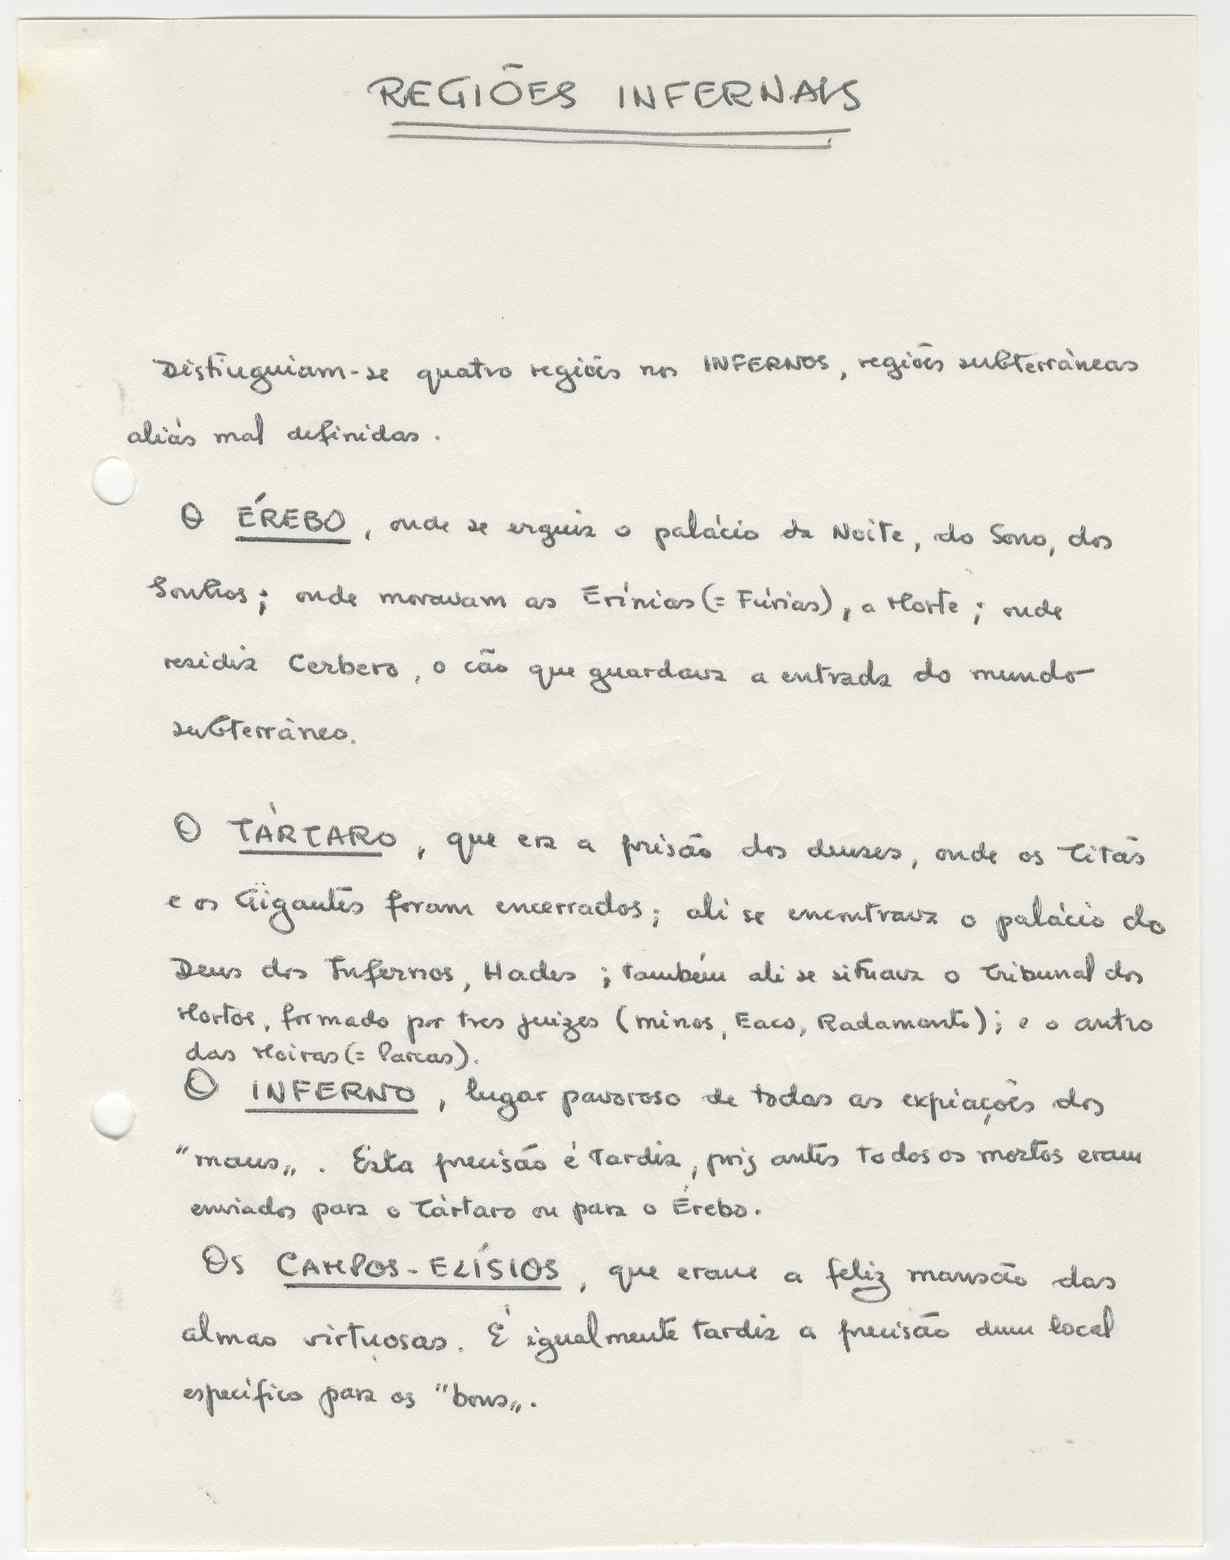 REGIÕES INFERNAIS
Distinguiam-se quatro regiões nos INFERNOS, regiões subterrâneas
aliás mal definidas.
O ÉREBO, onde se erguia o palácio da Noite, do Sono, dos
Sonhos; onde moravam as Erínias (= Fúrias), a Morte; onde
residia Cerbero, o cão que guardava a entrada do mundo
subterrâneo.
O TÁRTARO, que era a prisão dos deuses, onde os Titãs
e os Gigantes foram encerrados; ali se encontrava o palácio do
Deus dos Infernos, Hades; também ali se situava o Tribunal dos
Mortos, formado por tres juizes (Minos, Eaco, Radamanto); e o antro
das Moiras (= Parcas).
O INFERNO, lugar pavoroso de todas as expiações dos
"maus„. Esta precisão é tardia, pois antes todos os mortos eram
enviados para o Tártaro ou para o Érebo.
Os CAMPOS-ELÍSIOS, que eram a feliz mansão das
almas virtuosas. É igualmente tardia a precisão dum local
específico para os "bons„.